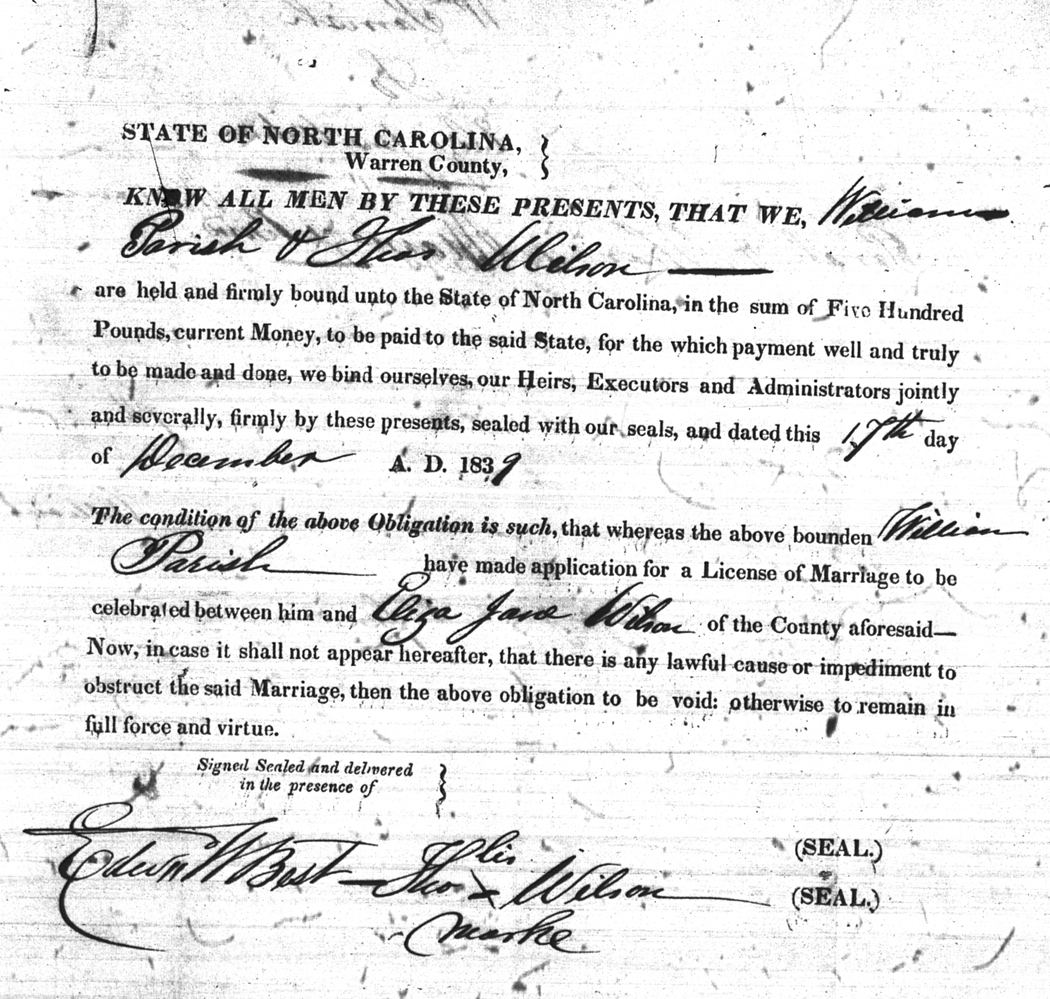 STATE OF NORTH CAROLINA, }
Warren County,
KNOW ALL MEN BY THESE PRESENTS, THAT WE, William
Parish & Thos Wilson
are held and firmly bound unto the State of North Carolina, in the sum of Five Hundred
Pounds, current Money, to be paid to the said State, for the which payment well and truly
to be made and done, we bind ourselves, our Heirs, Executors and Administrators jointly
and severally, firmly by these presents, sealed with our seals, and dated this 17th day
of December A. D. 1839
The condition of the above Obligation is such, that whereas the above bounden William
Parish have made application for a License of Marriage to be
celebrated between him and Eliza Jane Wilson of the County aforesaid—
Now, in case it shall not appear hereafter, that there is any lawful cause or impediment to
obstruct the said Marriage, then the above obligation to be void: otherwise to remain in
full force and virtue.
Signed Sealed and delivered }
in the presence of
his (SEAL.)
Edwin W Best Thos x Wilson (SEAL.)
marke